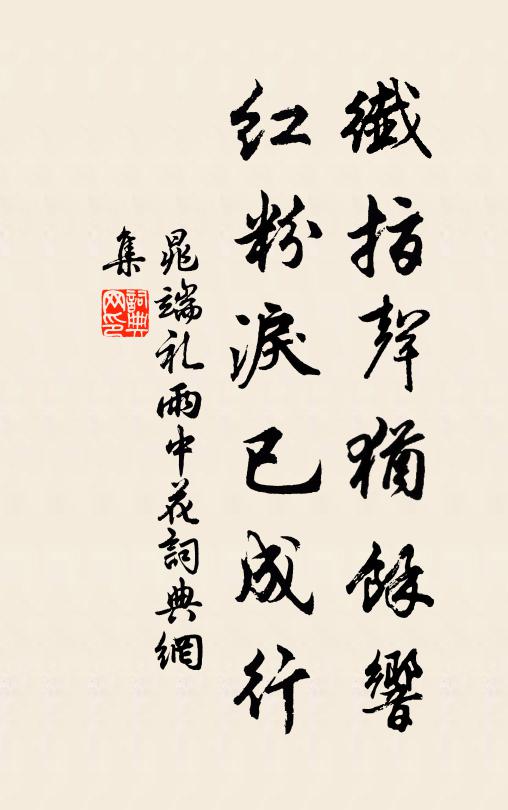 纖指聲猶餘響
紅粉淚已成行
晁端礼雨中花詞典網
集
詞典网印